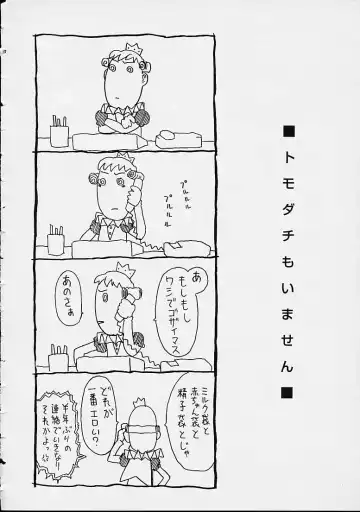 ■トモダチもいません■
プルルル
プルルル
あ
もしもし
ワシで
ゴザイマス
あのさぁ
ミルク袋と
赤ちゃん袋と
精子袋とじゃ
どれが
一番エロい?
半年ぶりの
連絡でいきなり
それかよっ